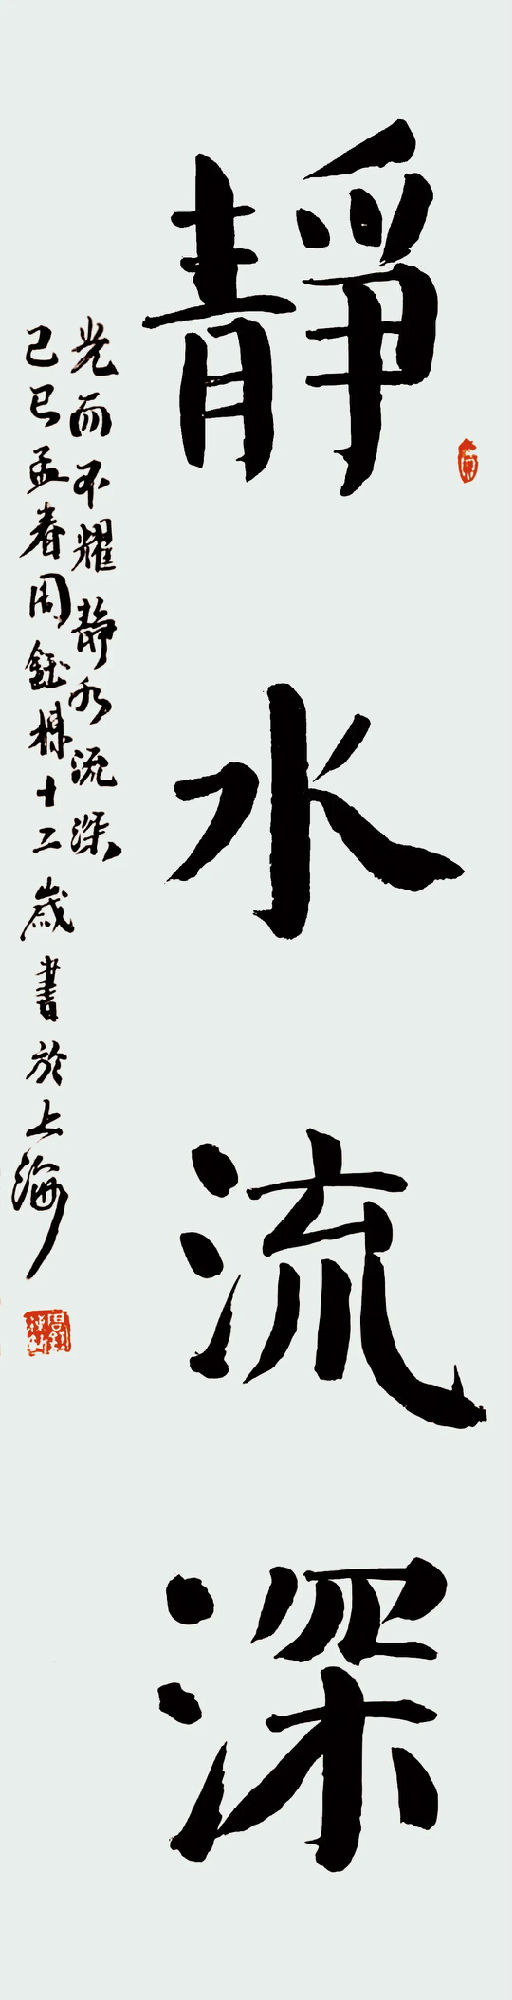 靜水流深
光而不耀 静水流深
己巳孟春周鈺棟十二歲書於上海